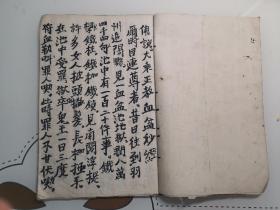 佛説大乘正教血盆妙經
爾時目連尊者昔日往到羽
州追陽縣見一血盆池地獄闊八萬
四千四池中有一百二十件事鐵
樑鐵柱鐵枷鐵鎖見南閻浮提
許多女人披頭散髮長枷杻手
在池中受罪獄卒鬼王一日三度
將血勒叫罪人喫此時罪人不甘伏喫